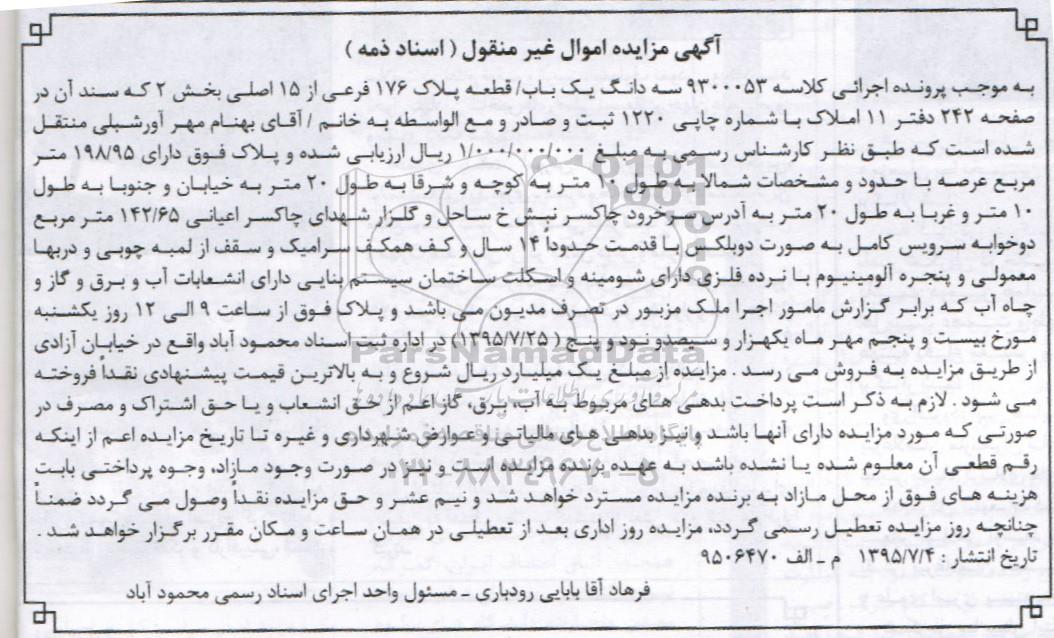 آگهی مزایده اموال غیر منقول ( اسناد ذمه )
به موجب پرونده اجرائی کلاسه ۹۳۰۰۰۵۳ سه دانگ یک باب/ قطعه پلاک ۱۷۶ فرعی از ۱۵ اصلی بخش ۲ که سند آن در
صفحه ۲۴۲ دفتر ۱۱ املاک با شماره چاپی ۱۲۲۰ ثبت و صادر و مع الواسطه به خانم / آقای بهنام مهر آورشبلی منتقل
شده است که طبق نظر کارشناس رسمی به مبلغ ۱/۰۰۰/۰۰۰/۰۰۰ ریال ارزیابی شده و پلاک فوق دارای ۱۹۸/۹۵ متر
مربع عرصه با حدود و مشخصات شمالا به طول ۱۰ متر به کوچه و شرقا به طول ۲۰ متر به خیابان و جنوبا به طول
۱۰ متر و غربا به طول ۲۰ متر به آدرس سرخرود چاکسر نبش خ ساحل و گلزار شهدای چاکسر اعیانی ۱۴۲/۶۵ متر مربع
دوخوابه سرویس کامل به صورت دوبلکس با قدمت حدوداً ۱۴ سال و کف همکف سرامیک و سقف از لمبه چوبی و دربها
معمولی و پنجره آلومینیوم با نرده فلزی دارای شومینه و اسکلت ساختمان سیستم بنایی دارای انشعابات آب و برق و گاز و
چاه آب که برابر گزارش مامور اجرا ملک مزبور در تصرف مدیون می باشد و پلاک فوق از ساعت ۹ الی ۱۲ روز یکشنبه
مورخ بیست و پنجم مهر ماه یکهزار و سیصدو نود و پنج ( ۱۳۹۵/۷/۲۵) در اداره ثبت اسناد محمود آباد واقع در خیابان آزادی
از طریق مزایده به فروش می رسد . مزایده از مبلغ یک میلیارد ریال شروع و به بالاترین قیمت پیشنهادی نقداً فروخته
می شود . لازم به ذکر است پرداخت بدهی های مربوط به آب، برق، گاز اعم از حق انشعاب و یا حق اشتراک و مصرف در
صورتی که مورد مزایده دارای آنها باشد و نیز بدهی های مالیاتی و عوارض شهرداری و غیره تا تاریخ مزایده اعم از اینکه
رقم قطعی آن معلوم شده یا نشده باشد به عهده برنده مزایده است و نیز در صورت وجود مازاد، وجوه پرداختی بابت
هزینه های فوق از محل مازاد به برنده مزایده مسترد خواهد شد و نیم عشر و حق مزایده نقداً وصول می گردد ضمناً
چنانچه روز مزایده تعطیل رسمی گردد، مزایده روز اداری بعد از تعطیلی در همان ساعت و مکان مقرر برگزار خواهد شد .
تاریخ انتشار : ۱۳۹۵/۷/۴ م ـ الف ۹۵۰۶۴۷۰
فرهاد آقا بابایی رودباری ـ مسئول واحد اجرای اسناد رسمی محمود آباد
ParsNamadData
۰۲۱-۸۸۳۴۹۶۷۰-۵